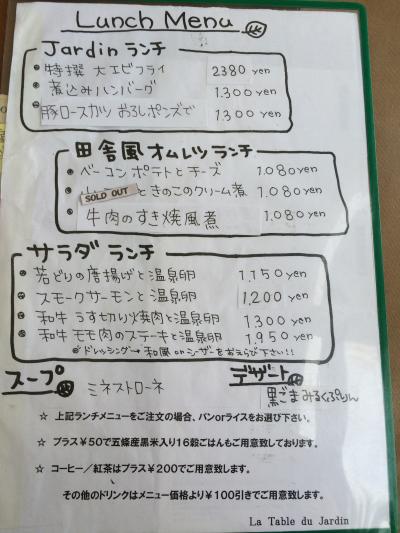 Lunch Menu
Jardin ランチ
特撰 大エビフライ 2380 yen
煮込みハンバーグ 1.300 yen
豚ロースカツ おろしポンズで 1.300 yen
田舎風オムレツランチ
ベーコンポテトとチーズ 1.080 yen
SOLD OUT ときのこのクリーム煮 1.080 yen
牛肉のすき焼風煮 1.080 yen
サラダ ランチ
若どりの唐揚げと温泉卵 1.150 yen
スモークサーモンと温泉卵 1.200 yen
和牛 うす切り焼肉と温泉卵 1.300 yen
和牛 モモ肉のステーキと温泉卵 1.950 yen
ドレッシング→和風 or シーザーをおえらび下さい!!
スープ ミネストローネ
デザート 黒ごまみるくぷりん
☆ 上記ランチメニューをご注文の場合、パンorライスをお選び下さい。
☆ プラス¥50で五條産黒米入り16穀ごはんもご用意致しております。
☆ コーヒー/紅茶はプラス¥200でご用意致します。
その他のドリンクはメニュー価格より¥100引きでご用意致します。
La Table du Jardin